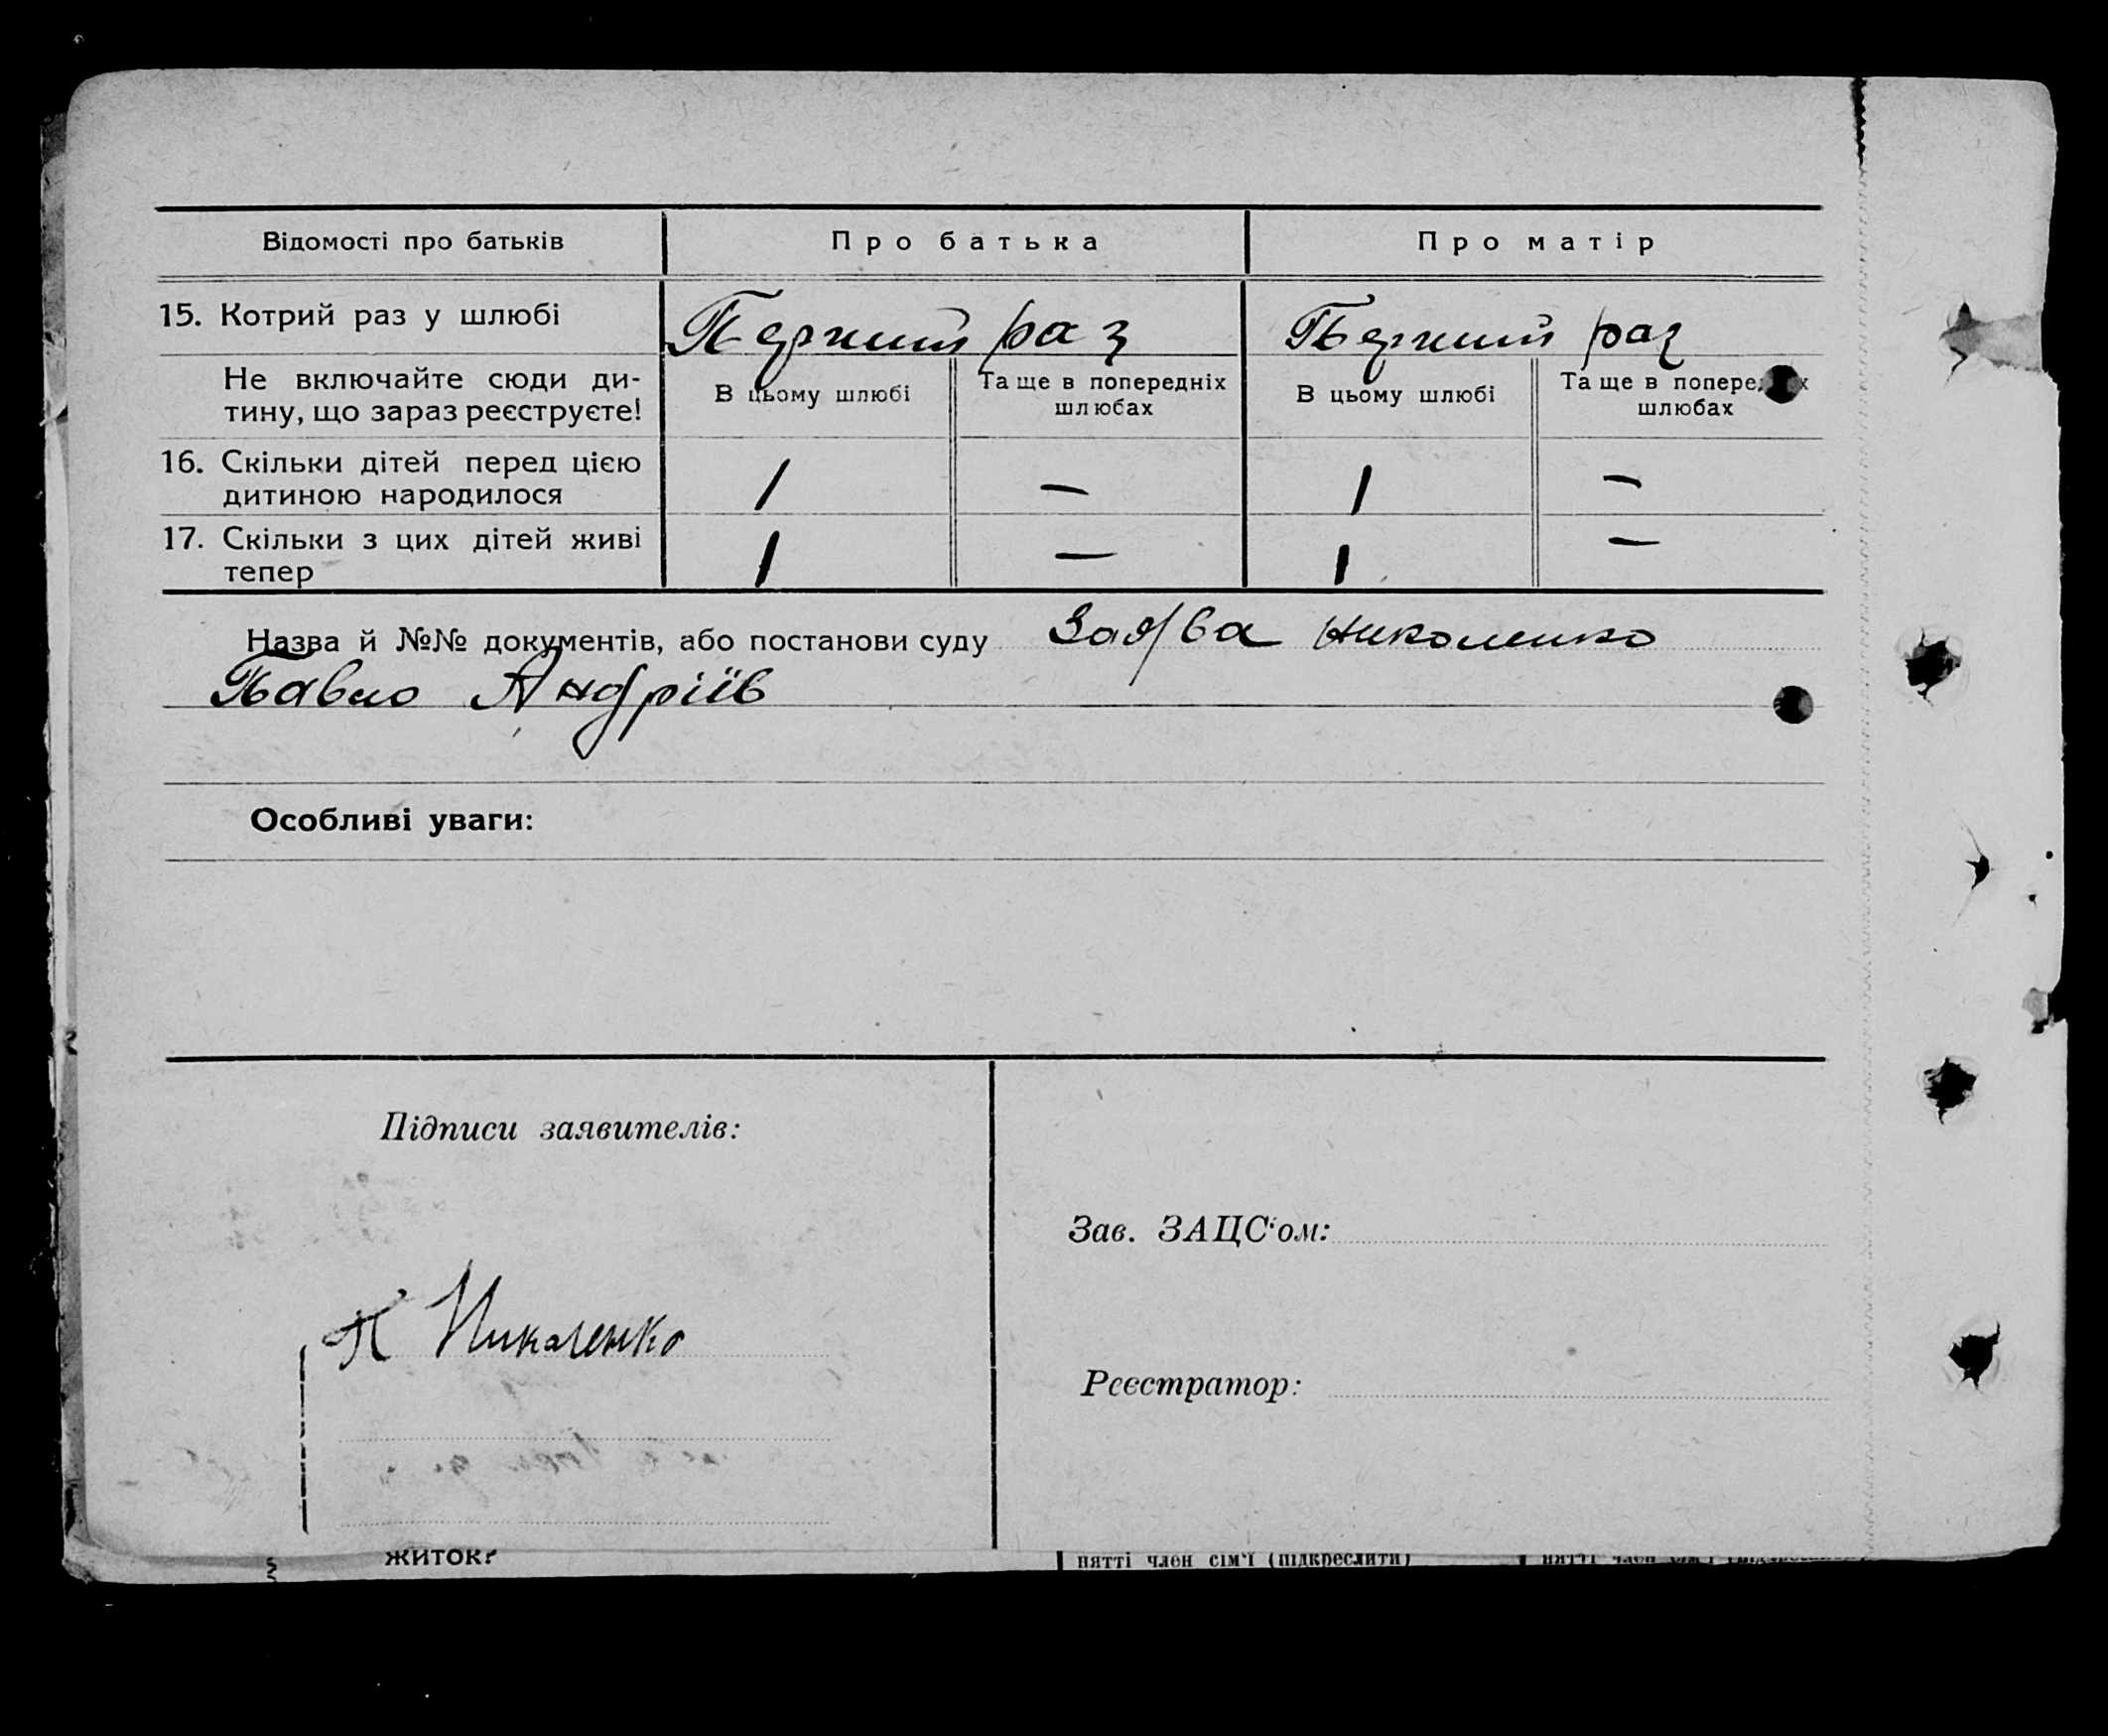 Відомості про батьків Про батька Про матір
15. Котрий раз у шлюбі Перший раз Перший раз
Не включайте сюди ди- В цьому шлюбі Та ще в попередніх В цьому шлюбі Та ще в
тину, що зараз реєструєте! шлюбах шлюбах
16. Скільки дітей перед цією
дитиною народилося 1 — 1 —
17. Скільки з цих дітей живі
тепер 1 — 1 —
Назва й №№ документів, або постанови суду Заява Николенко
Павло Андріїв
Особливі уваги:
Підписи заявителів:
Зав. ЗАЦС'ом:
П Николенко
Реєстратор:
житок?
нятті член сім'ї (підкреслити)